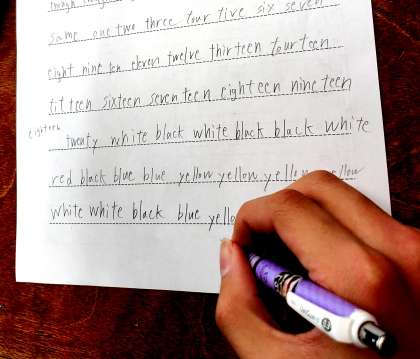 same one two three four five six seven
eight nine ten eleven twelve thirteen fourteen
fifteen sixteen seventeen eighteen nineteen
eighteen
twenty white black white black black white
red black blue blue yellow yellow yellow yellow
white white black blue yello